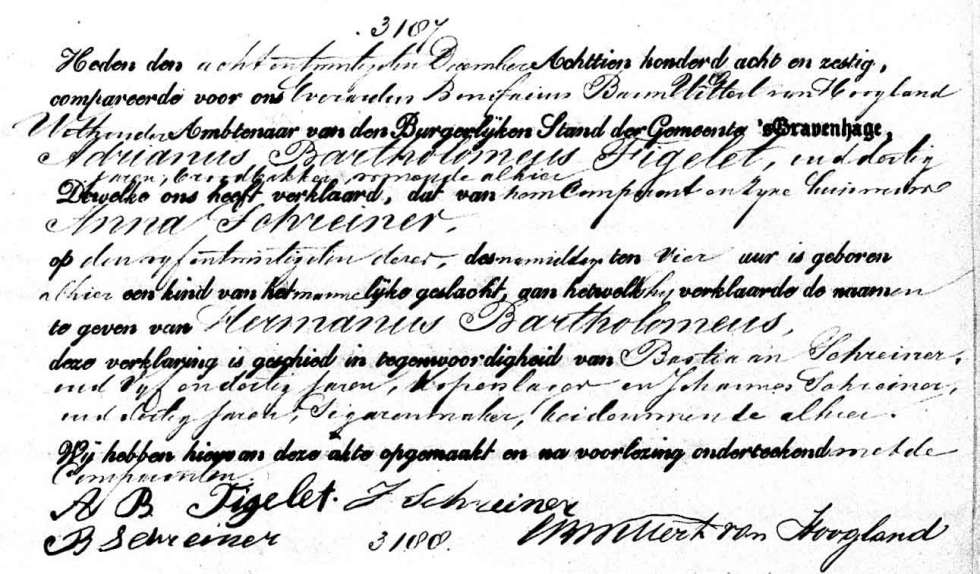 3187
Heden den acht en twintigsten December Achttien honderd acht en zestig,
compareerde voor ons Everardus Bonifacius Baum Wittert van Hoogland
Wethouder Ambtenaar van den Burgerlijken Stand der Gemeente 's Gravenhage,
Adrianus Bartholomeus Tigelet, oud dertig
jaren, broodbakker, wonende alhier
Dewelke ons heeft verklaard, dat van hem Comparant en zyne huisvrouw
Anna Schreiner,
op den vyf en twintigsten dezer, des namiddags ten vier uur is geboren
alhier een kind van het mannelijke geslacht, aan hetwelk hy verklaarde de naamen
te geven van Hermanus Bartholomeus,
deze verklaring is geschied in tegenwoordigheid van Bastiaan Schreiner,
oud vyf en dertig jaren, Koperslager en Johannes Schreiner,
oud dertig jaren, Sigarenmaker, beide wonende alhier.
Wij hebben hiervan deze akte opgemaakt en na voorlezing onderteekend met de
Comparanten
A B Tigelet. J Schreiner
B Schreiner 3188. Wittert van Hoogland